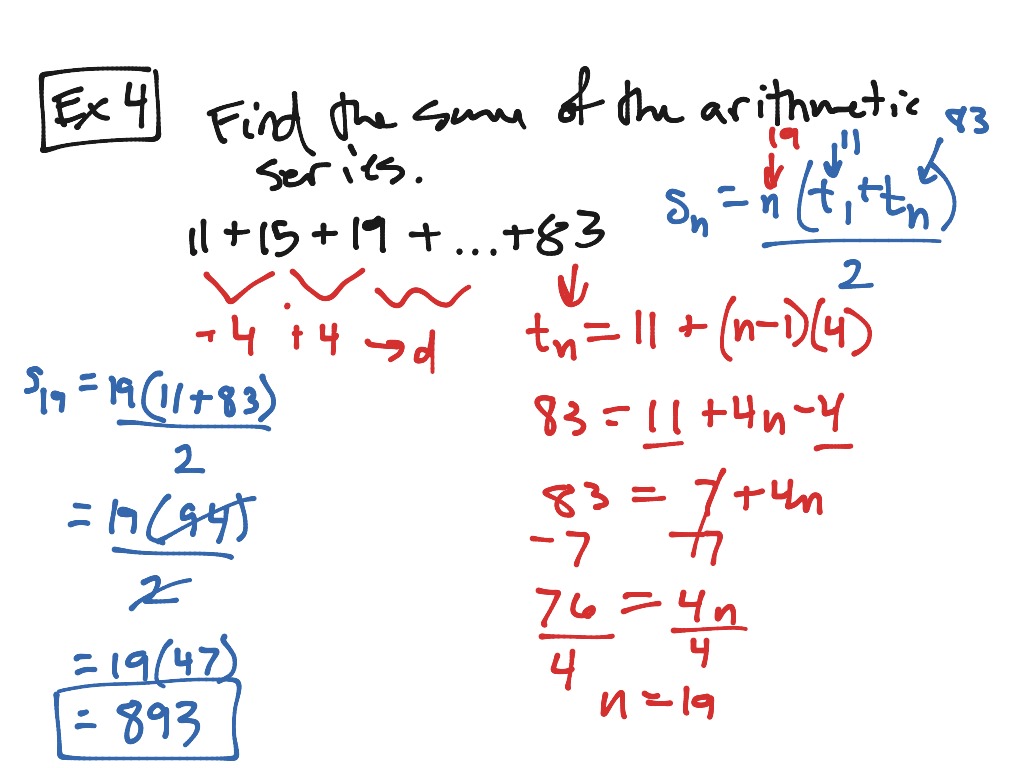 Ex 4
Find the sum of the arithmetic
series.
11 + 15 + 19 + ... + 83
+4 +4 → d
19
11
83
Sn = n(t1 + tn)
2
tn = 11 + (n-1)(4)
83 = 11 + 4n - 4
83 = 7 + 4n
-7 -7
76 = 4n
4 4
n = 19
S19 = 19(11+83)
2
= 19(94)
2
= 19(47)
= 893